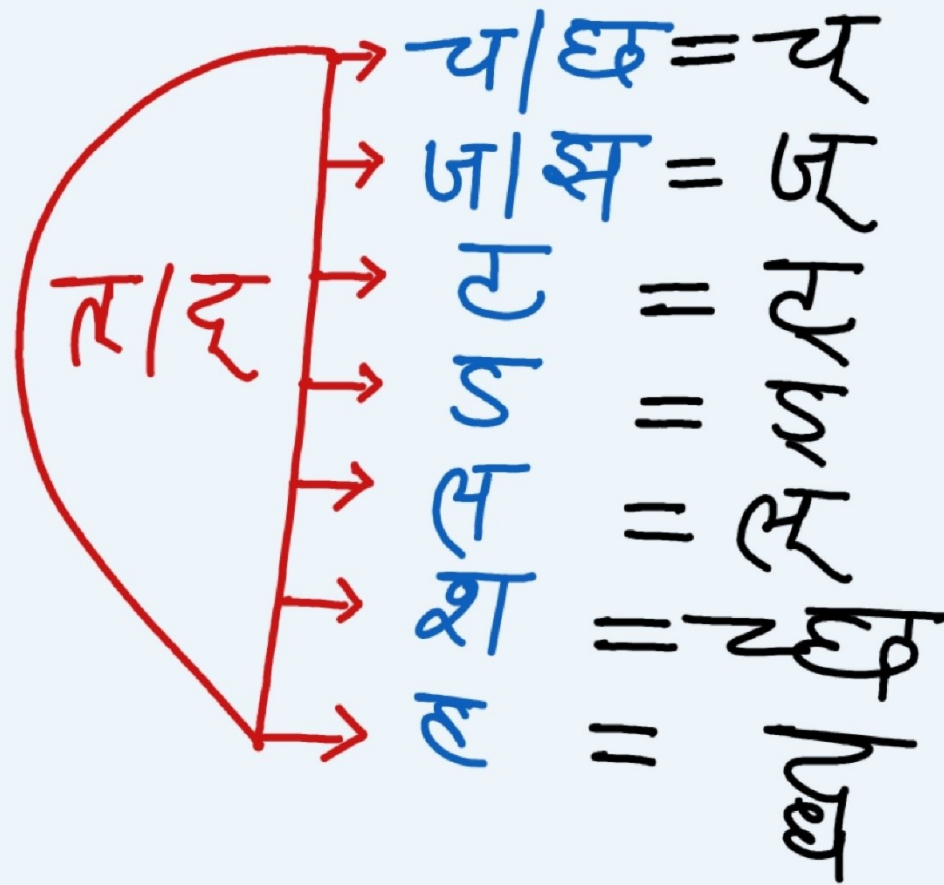 च/छ = च्
ज/झ = ज्
त्/द्
ट = ट्
ड = ड्
ल = ल्
श = च्छ
ह = द्ध